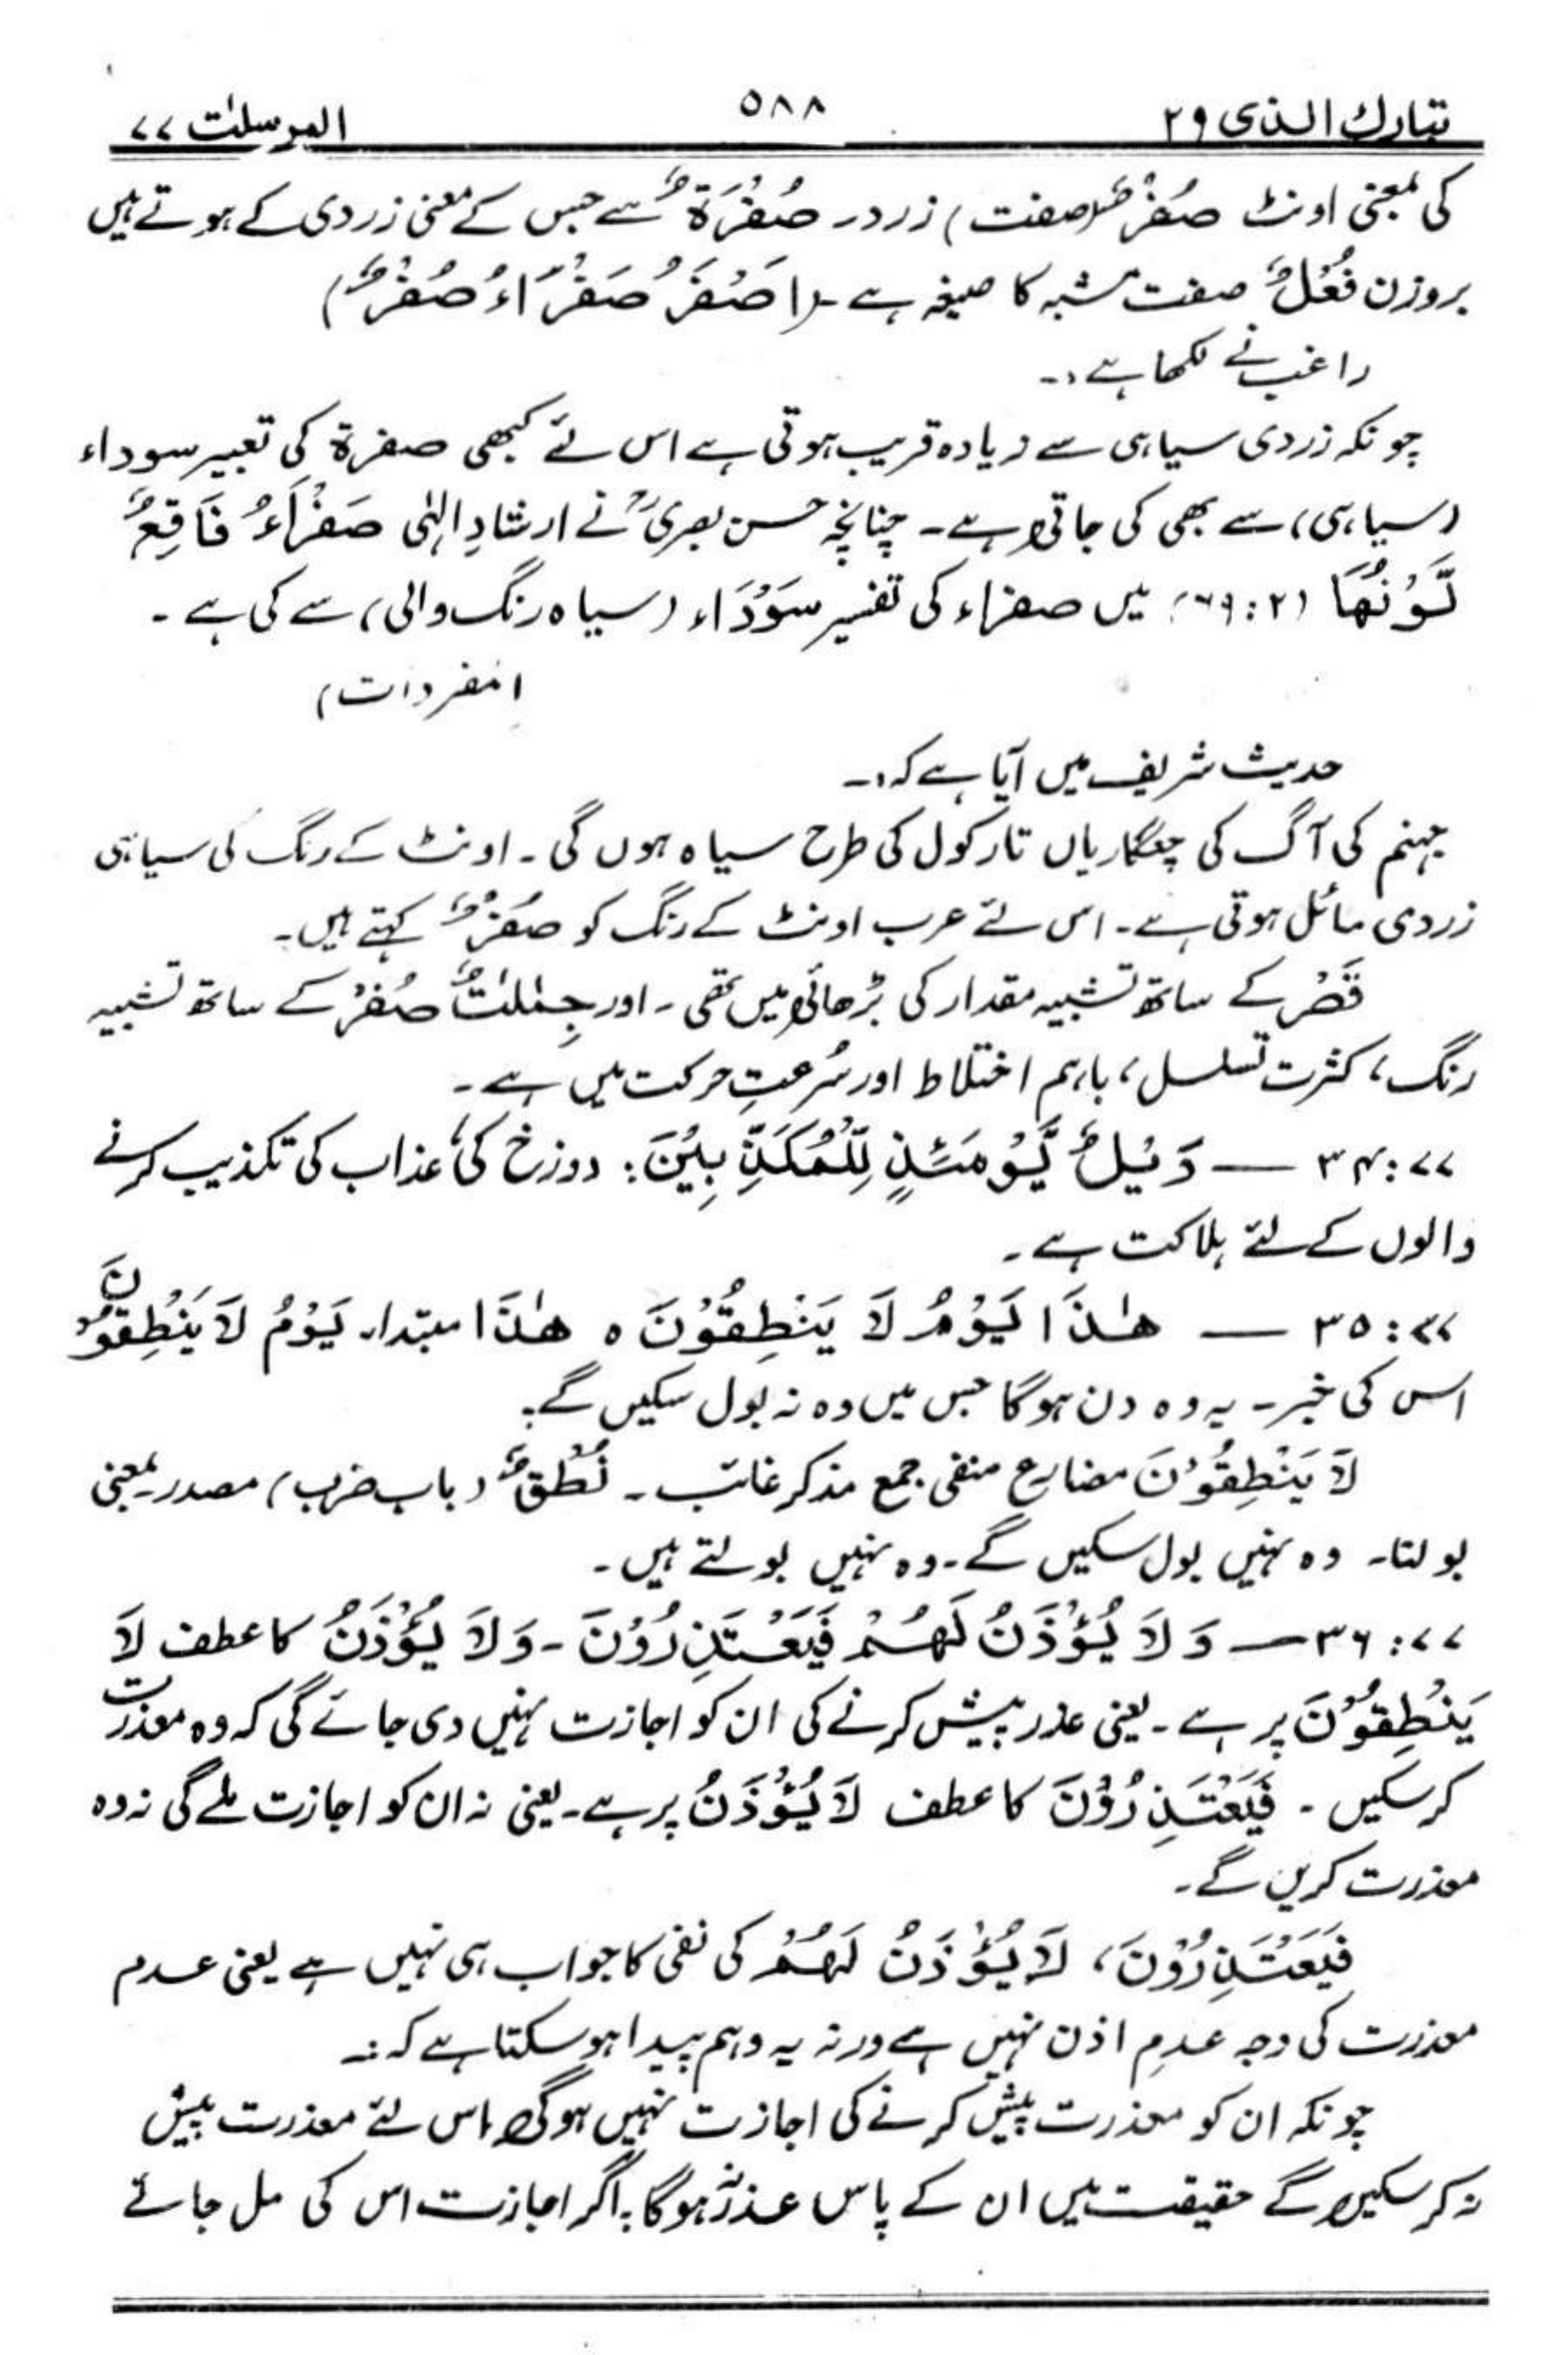 تبارك الذی ۲۹
۵۸۸
المرسلٰت ۷۷
کی بمعنی اونٹ صُفْرٌ (صفت) زرد۔ صُفْرَۃٌ سے جس کے معنی زردی کے ہوتے ہیں
بروزن فُعْلٌ صفت مشبہ کا صیغہ ہے۔ (اَصْفَرُ صَفْرَاءُ صُفْرٌ)
راغب نے لکھا ہے:۔
چونکہ زردی سیاہی سے زیادہ قریب ہوتی ہے اس لئے کبھی صفرۃ کی تعبیر سوداء
(سیاہی) سے بھی کی جاتی ہے۔ چنانچہ حسن بصریؒ نے ارشادِ الٰہی صَفْرَاءُ فَاقِعٌ
لَّوْنُهَا (۲:۶۹) میں صفراء کی تفسیر سَوْدَاء (سیاہ رنگ والی) سے کی ہے۔
(مفردات)
حدیث شریف میں آیا ہے کہ:۔
جہنم کی آگ کی چنگاریاں تارکول کی طرح سیاہ ہوں گی۔ اونٹ کے رنگ کی سیاہی
زردی مائل ہوتی ہے۔ اس لئے عرب اونٹ کے رنگ کو صُفْرٌ کہتے ہیں۔
قَصْر کے ساتھ تشبیہ مقدار کی بڑھائی میں تھی۔ اور جِمٰلٰتٌ صُفْرٌ کے ساتھ تشبیہ
رنگ، کثرت تسلسل، باہم اختلاط اور سُرعتِ حرکت میں ہے۔
۷۷:۳۴ — وَيْلٌ يَّوْمَئِذٍ لِّلْمُكَذِّبِيْنَ: دوزخ کی عذاب کی تکذیب کرنے
والوں کے لئے ہلاکت ہے۔
۷۷:۳۵ — هٰذَا يَوْمُ لَا يَنْطِقُوْنَ ہ هٰذَا مبتداء۔ يَوْمُ لَا يَنْطِقُوْنَ
اس کی خبر۔ یہ وہ دن ہوگا جس میں وہ نہ بول سکیں گے۔
لَا يَنْطِقُوْنَ مضارع منفی جمع مذکر غائب۔ نُطْقٌ (باب ضرب) مصدر بمعنی
بولنا۔ وہ نہیں بول سکیں گے۔ وہ نہیں بولتے ہیں۔
۷۷:۳۶ — وَلَا يُؤْذَنُ لَهُمْ فَيَعْتَذِرُوْنَ۔ وَلَا يُؤْذَنُ کا عطف لَا
يَنْطِقُوْنَ پر ہے۔ یعنی عذر پیش کرنے کی ان کو اجازت نہیں دی جائے گی کہ وہ معذرت
کر سکیں۔ فَيَعْتَذِرُوْنَ کا عطف لَا يُؤْذَنُ پر ہے۔ یعنی نہ ان کو اجازت ملے گی نہ وہ
معذرت کریں گے۔
فَيَعْتَذِرُوْنَ، لَا يُؤْذَنُ لَهُمْ کی نفی کا جواب ہی نہیں ہے یعنی عدم
معذرت کی وجہ عدمِ اذن نہیں ہے ورنہ یہ وہم پیدا ہوسکتا ہے کہ:۔
چونکہ ان کو معذرت پیش کرنے کی اجازت نہیں ہوگی اس لئے معذرت پیش
نہ کر سکیں گے حقیقت میں ان کے پاس عذر نہ ہوگا۔ اگر اجازت اس کی مل جائے